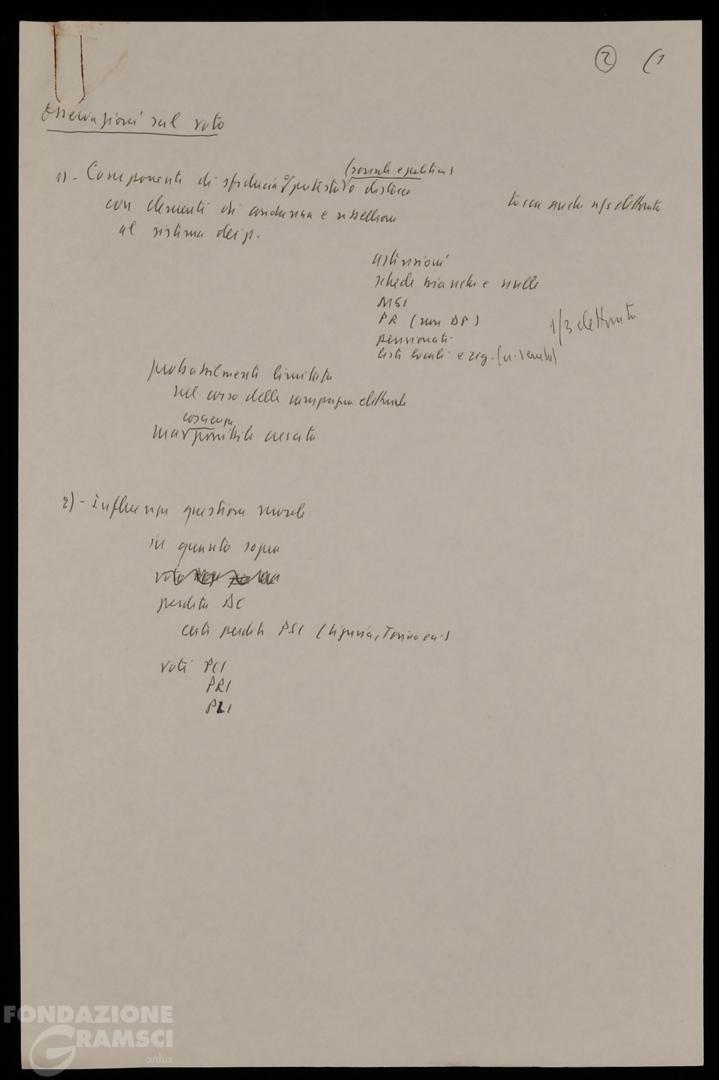 ② (1
Osservazioni sul voto
(sociale e politica)
1) - Componenti di sfiducia o/protesta/o distacco
con elementi di condanna e ribellione
al sistema dei p.
tocca anche ns elettorato
astensioni
schede bianche e nulle
MSI
PR (non DP)
1/3 elettorato
pensionati
liste locali e reg. (v. Veneto)
probabilmente limitata
nel corso della campagna elettorale
coscienza
ma possibile crescita
2) - influenza questione morale
in quanto sopra
voto
perdita DC
certe perdite PSI (Liguria, Torino
voti PCI
PRI
PLI
FONDAZIONE
GRAMSCI
onlus